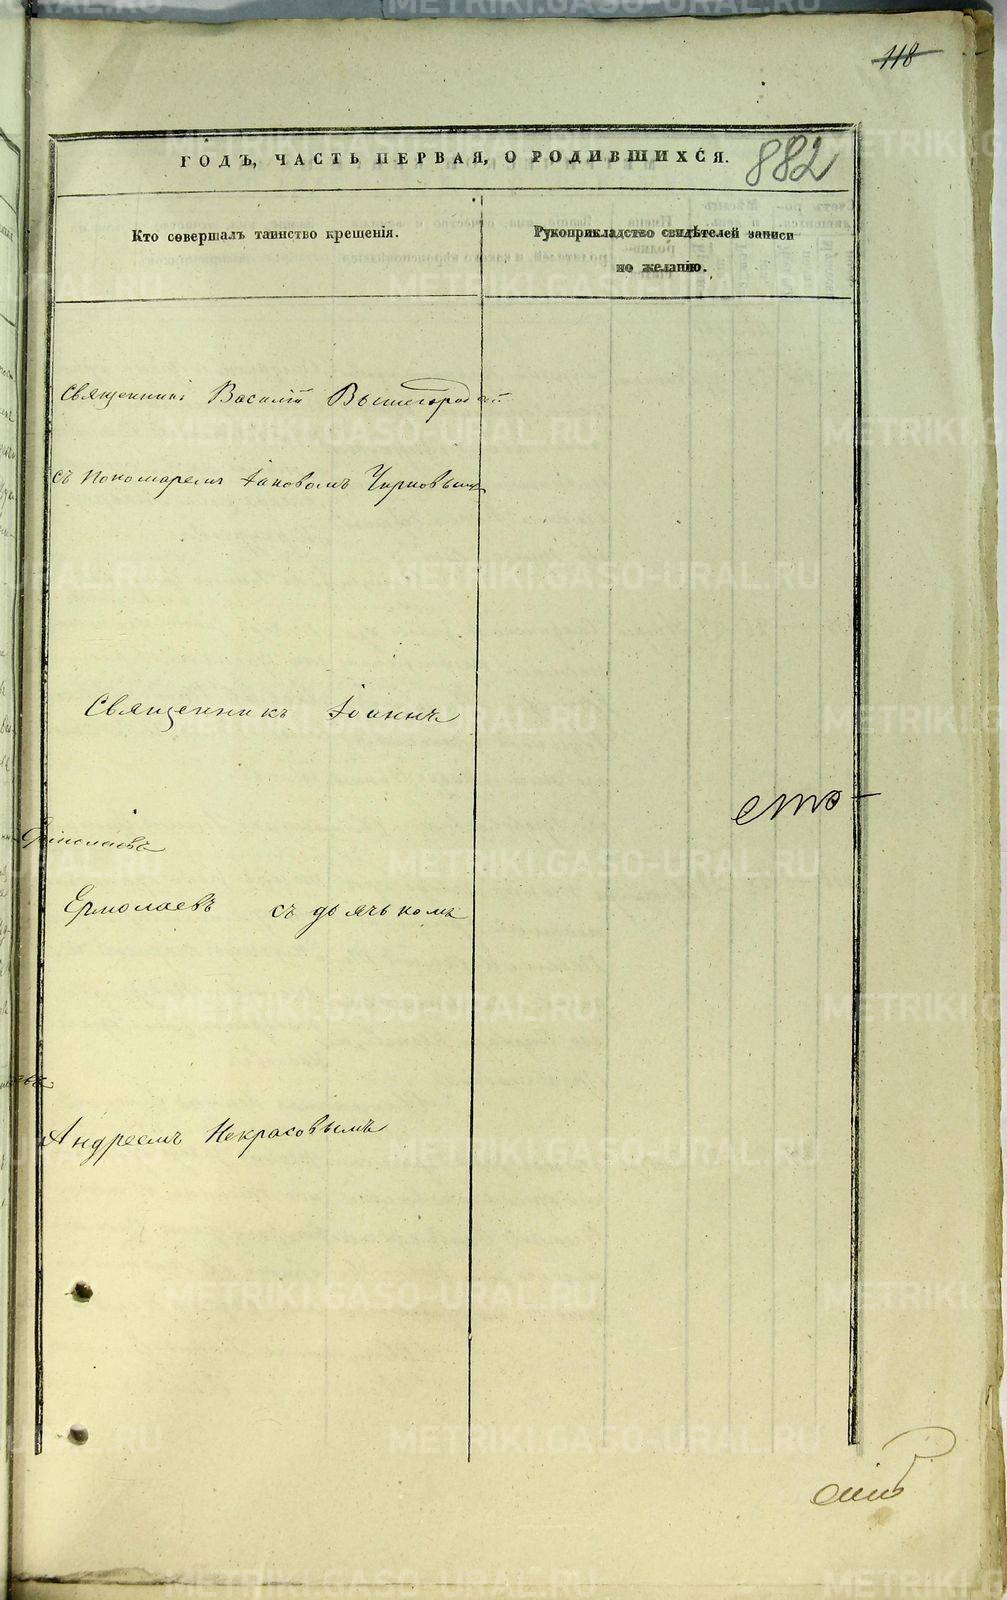 118
ГОДЪ, ЧАСТЬ ПЕРВАЯ, О РОДИВШИХСЯ.
882
Кто совершалъ таинство крещенія.
Рукоприкладство свидѣтелей записи
по желанію.
Священникъ Василій Вышегородскій
съ пономаремъ Іаковомъ
Священникъ Іоаннъ
сто
Ермолаевъ съ дьячькомъ
Андреемъ Некрасовымъ
METRIKI.GASO-URAL.RU